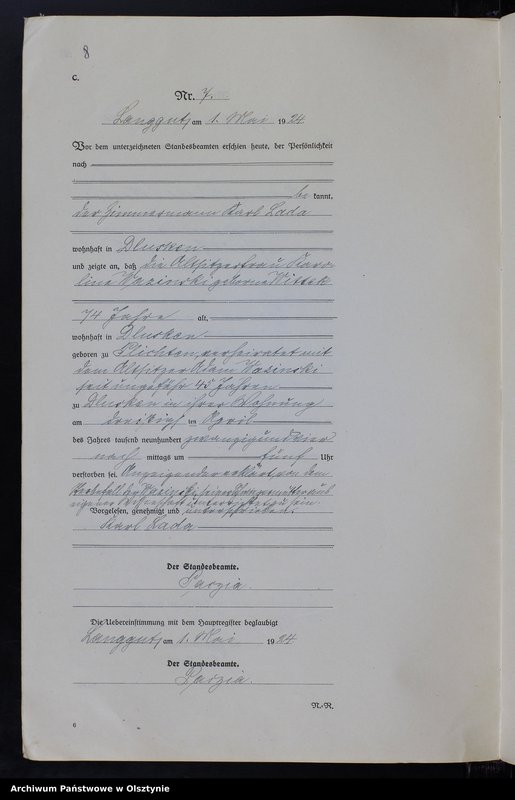 8
C.
Nr. 7.
Langgut, am 1. Mai 1924
Vor dem unterzeichneten Standesbeamten erschien heute, der Persönlichkeit
nach
be kannt,
der Zimmermann Karl Lada
wohnhaft in Dlusken
und zeigte an, daß die Altsitzerfrau Karo-
line Wazinski geborne Wittek
74 Jahre alt,
wohnhaft in Dlusken
geboren zu verheiratet mit
dem Altsitzer Adam Wazinski
seit ungefähr 45 Jahren
zu Dlusken in ihrer Wohnung
am dreißigsten April
des Jahres tausend neunhundert zwanzigundvier
nach mittags um fünf Uhr
verstorben sei. Anzeigender erklärt von dem
Sterbefall der Wazinski aus
eigener Wissenschaft unterrichtet zu sein
Vorgelesen, genehmigt und unterschrieben.
Karl Lada
Der Standesbeamte.
Die Uebereinstimmung mit dem Hauptregister beglaubigt
Langgut, am 1. Mai 1924
Der Standesbeamte.
N.-R.
6
Archiwum Państwowe w Olsztynie